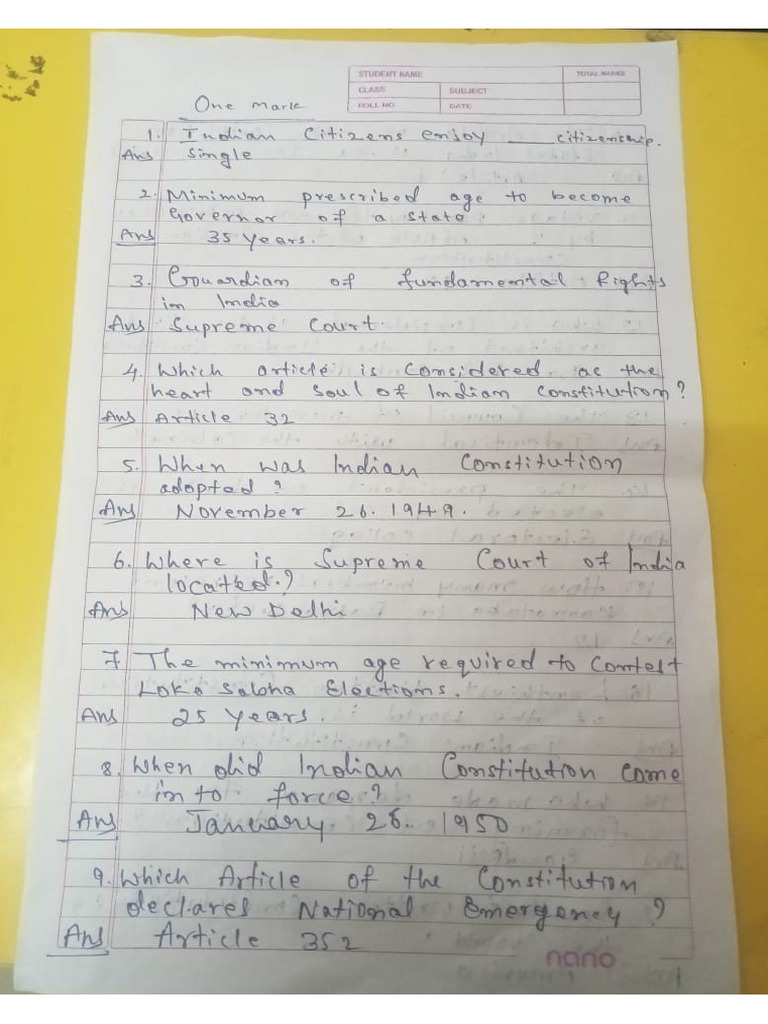 STUDENT NAME TOTAL MARKS
CLASS SUBJECT
ROLL NO DATE
One mark
1. Indian Citizens enjoy ____ citizenship.
Ans Single
2. Minimum prescribed age to become
Governor of a state
Ans 35 years.
3. Gouardian of fundamental Rights
in India
Ans Supreme Court.
4. Which article is considered as the
heart and soul of Indian constitution?
Ans Article 32
5. When was Indian Constitution
adopted?
Ans November 26. 1949.
6. Where is Supreme Court of India
located.?
Ans New Delhi
7 The minimum age required to contest
Loka Sabha Elections.
Ans 25 years.
8. When did Indian Constitution come
in to force?
Ans January 26. 1950
9. Which Article of the Constitution
declares National Emergency?
Ans Article 352
nano 1